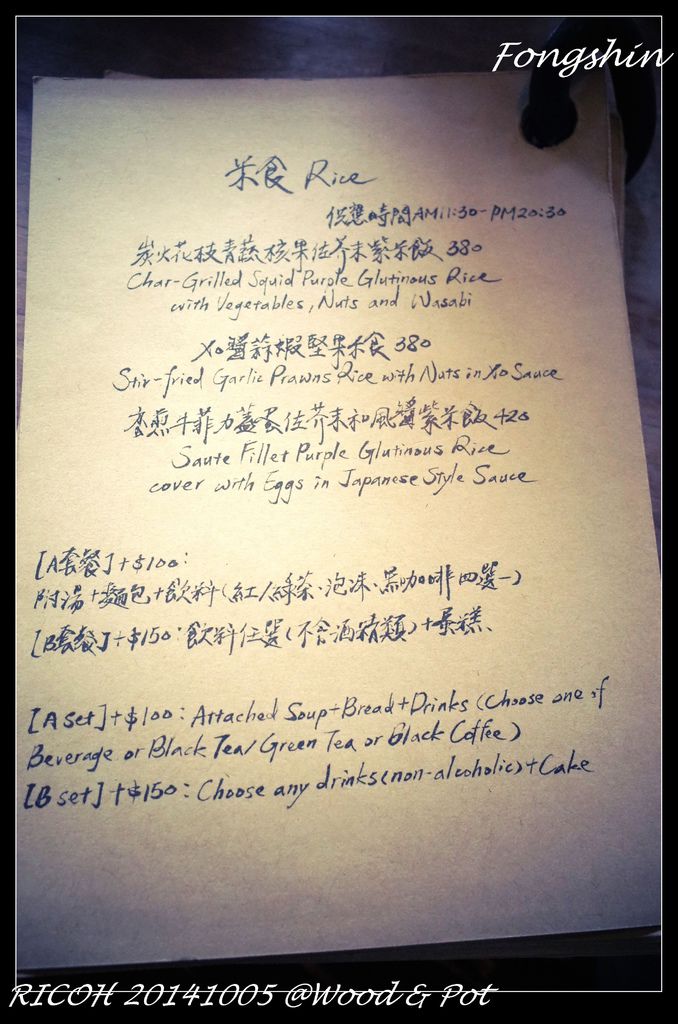 Fongshin
米食 Rice
供應時間AM11:30-PM20:30
炭火花枝青蔬核果佐芥末紫米飯 380
Char-Grilled Squid Purple Glutinous Rice
with Vegetables, Nuts and Wasabi
Xo醬蒜蝦堅果米食 380
Stir-fried Garlic Prawns Rice with Nuts in Xo Sauce
香煎牛菲力蓋蛋佐芥末和風醬紫米飯 420
Saute Fillet Purple Glutinous Rice
cover with Eggs in Japanese Style Sauce
[A套餐]+$100:
附湯+麵包+飲料(紅/綠茶、泡沫、黑咖啡四選一)
[B套餐]+$150:飲料任選(不含酒精類)+蛋糕、
[A set]+$100: Attached Soup+Bread+Drinks (Choose one if
Beverage or Black Tea/Green Tea or Black Coffee)
[B set]+$150: Choose any drinks(non-alcoholic)+Cake
RICOH 20141005 @Wood & Pot